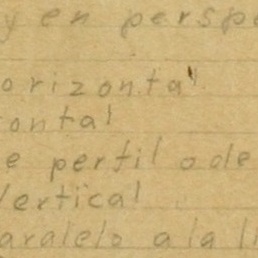 y en perspe
orizontal
ontal
e perfil o de
Vertical
aralelo a la lí